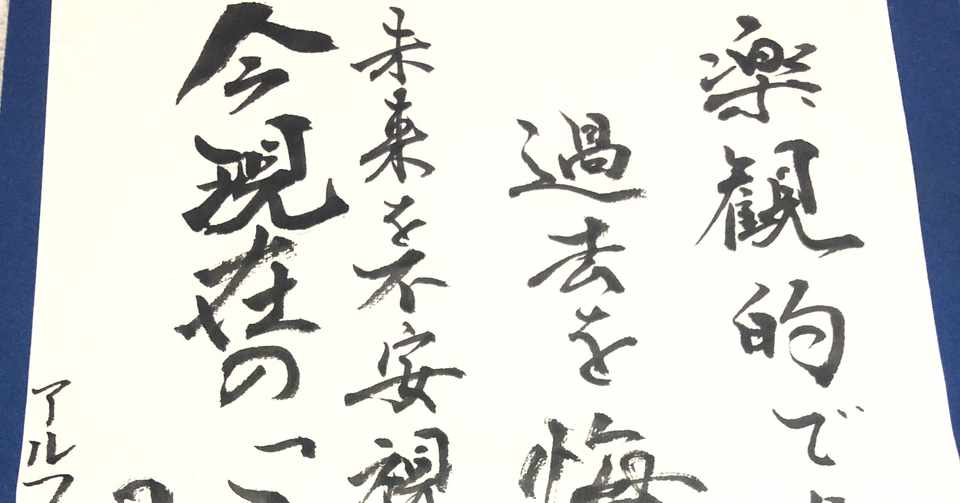 楽観的で
過去を悔
未来を不安視
今現在の「こ
アルフ